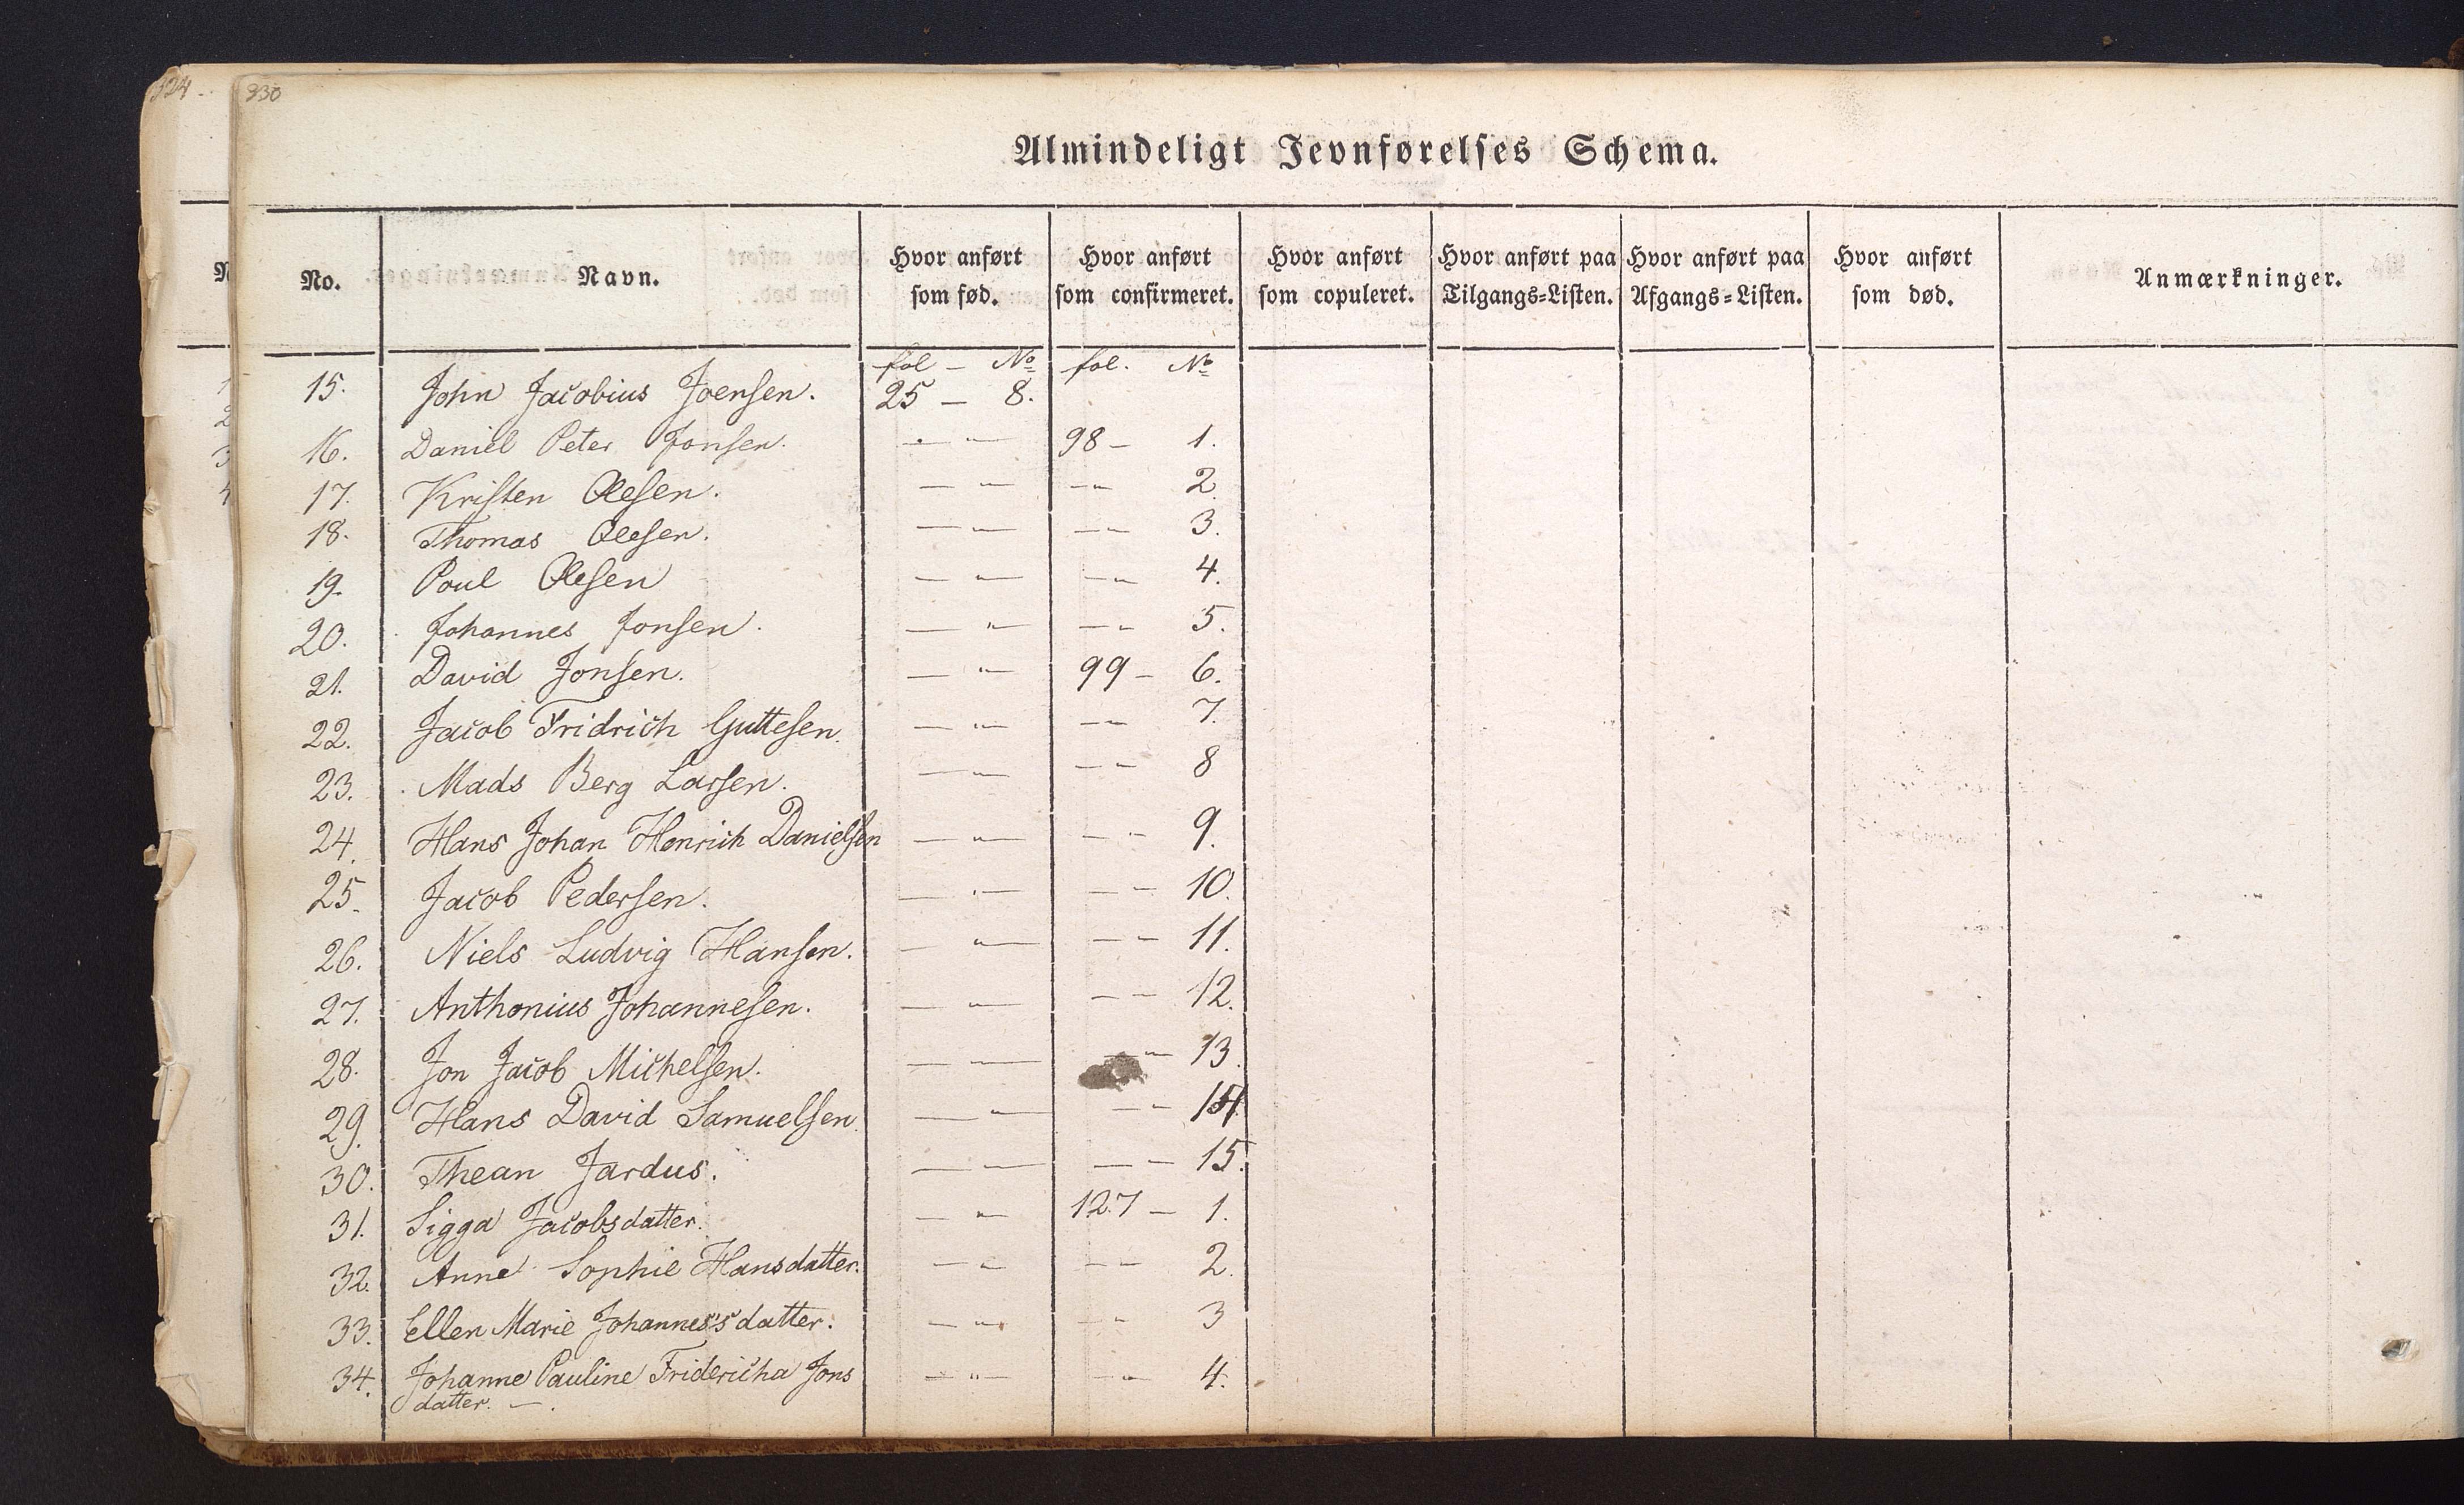 324
330
Almindeligt Jevnførelses Schema.
No. Navn. Hvor anført som fød. Hvor anført som confirmeret. Hvor anført som copuleret. Hvor anført paa Tilgangs=Listen. Hvor anført paa Afgangs=Listen. Hvor anført som død. Anmærkninger.
fol — No fol. No
15. John Jacobius Joensen. 25 — 8.
16. Daniel Peter Jonsen. — „ — 98 — 1.
17. Kristen Olesen. — „ — — „ 2.
18. Thomas Olesen. — „ — — „ 3.
19. Poul Olesen — „ — — „ 4.
20. Johannes Jonsen. — „ — — „ 5.
21. David Jonsen. — „ — 99 — 6.
22. Jacob Fridrich Guttesen. — „ — — „ 7.
23. Mads Berg Larsen. — „ — — „ 8
24. Hans Johan Henrich Danielsen — „ — — „ 9.
25. Jacob Pedersen. — „ — — „ 10.
26. Niels Ludvig Hansen. — „ — — „ 11.
27. Anthonius Johannesen. — „ — — „ 12.
28. Jon Jacob Michelsen. — „ — — „ 13.
29. Hans David Samuelsen. — „ — — „ 14.
30. Thean Jardus. — „ — — „ 15.
31. Sigga Jacobsdatter. — „ — 127 — 1.
32. Anne Sophie Hansdatter. — „ — — „ 2.
33. Ellen Marie Johannes's datter. — „ — — „ 3
34. Johanne Pauline Fridericha Jons — „ — — „ 4.
datter. —.